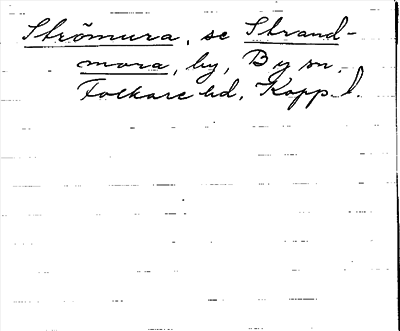 Strömura, se Strand-
mora, by, By sn.
Folkare hd, Kopp. l.